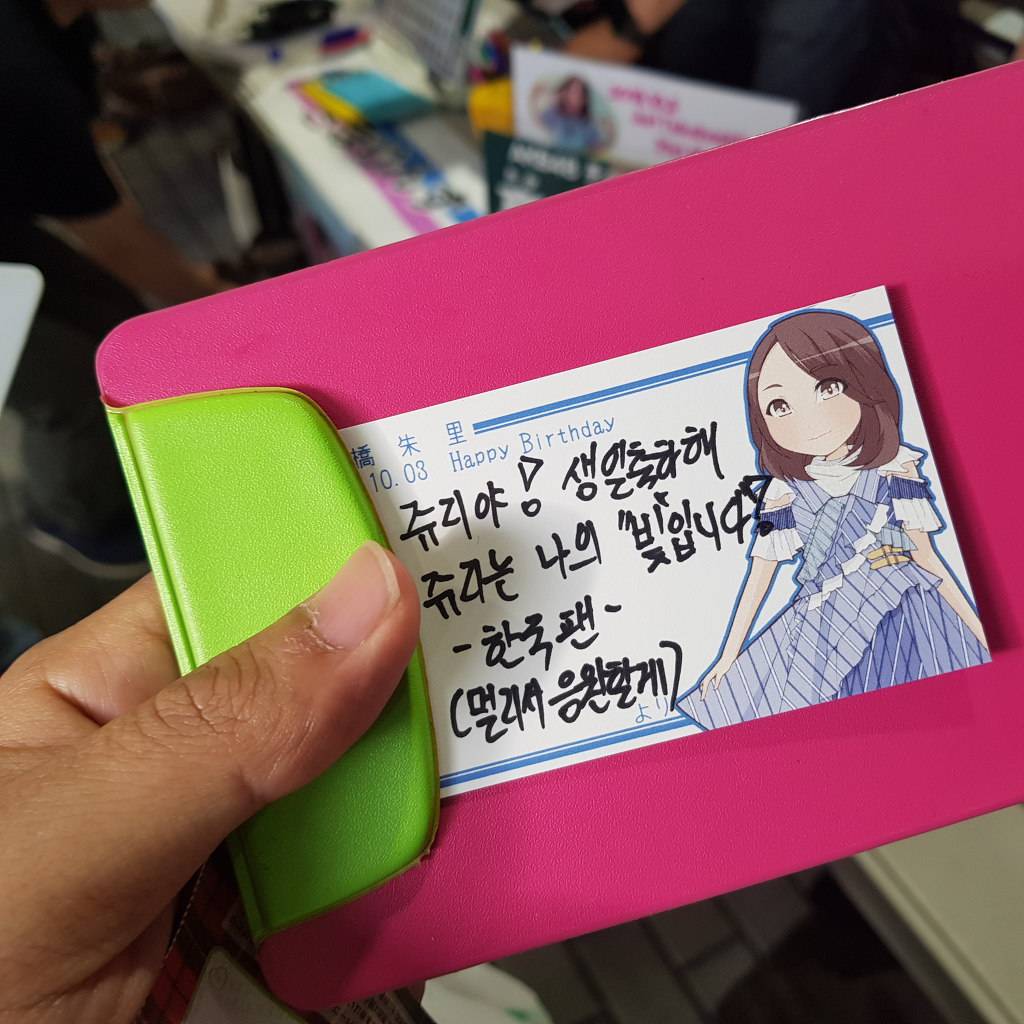 橋 朱 里
10.03 Happy Birthday
쥬리야! 생일축하해
쥬리는 나의 "빛"입니다!
-한국팬~
(멀리서 응원할게)
より